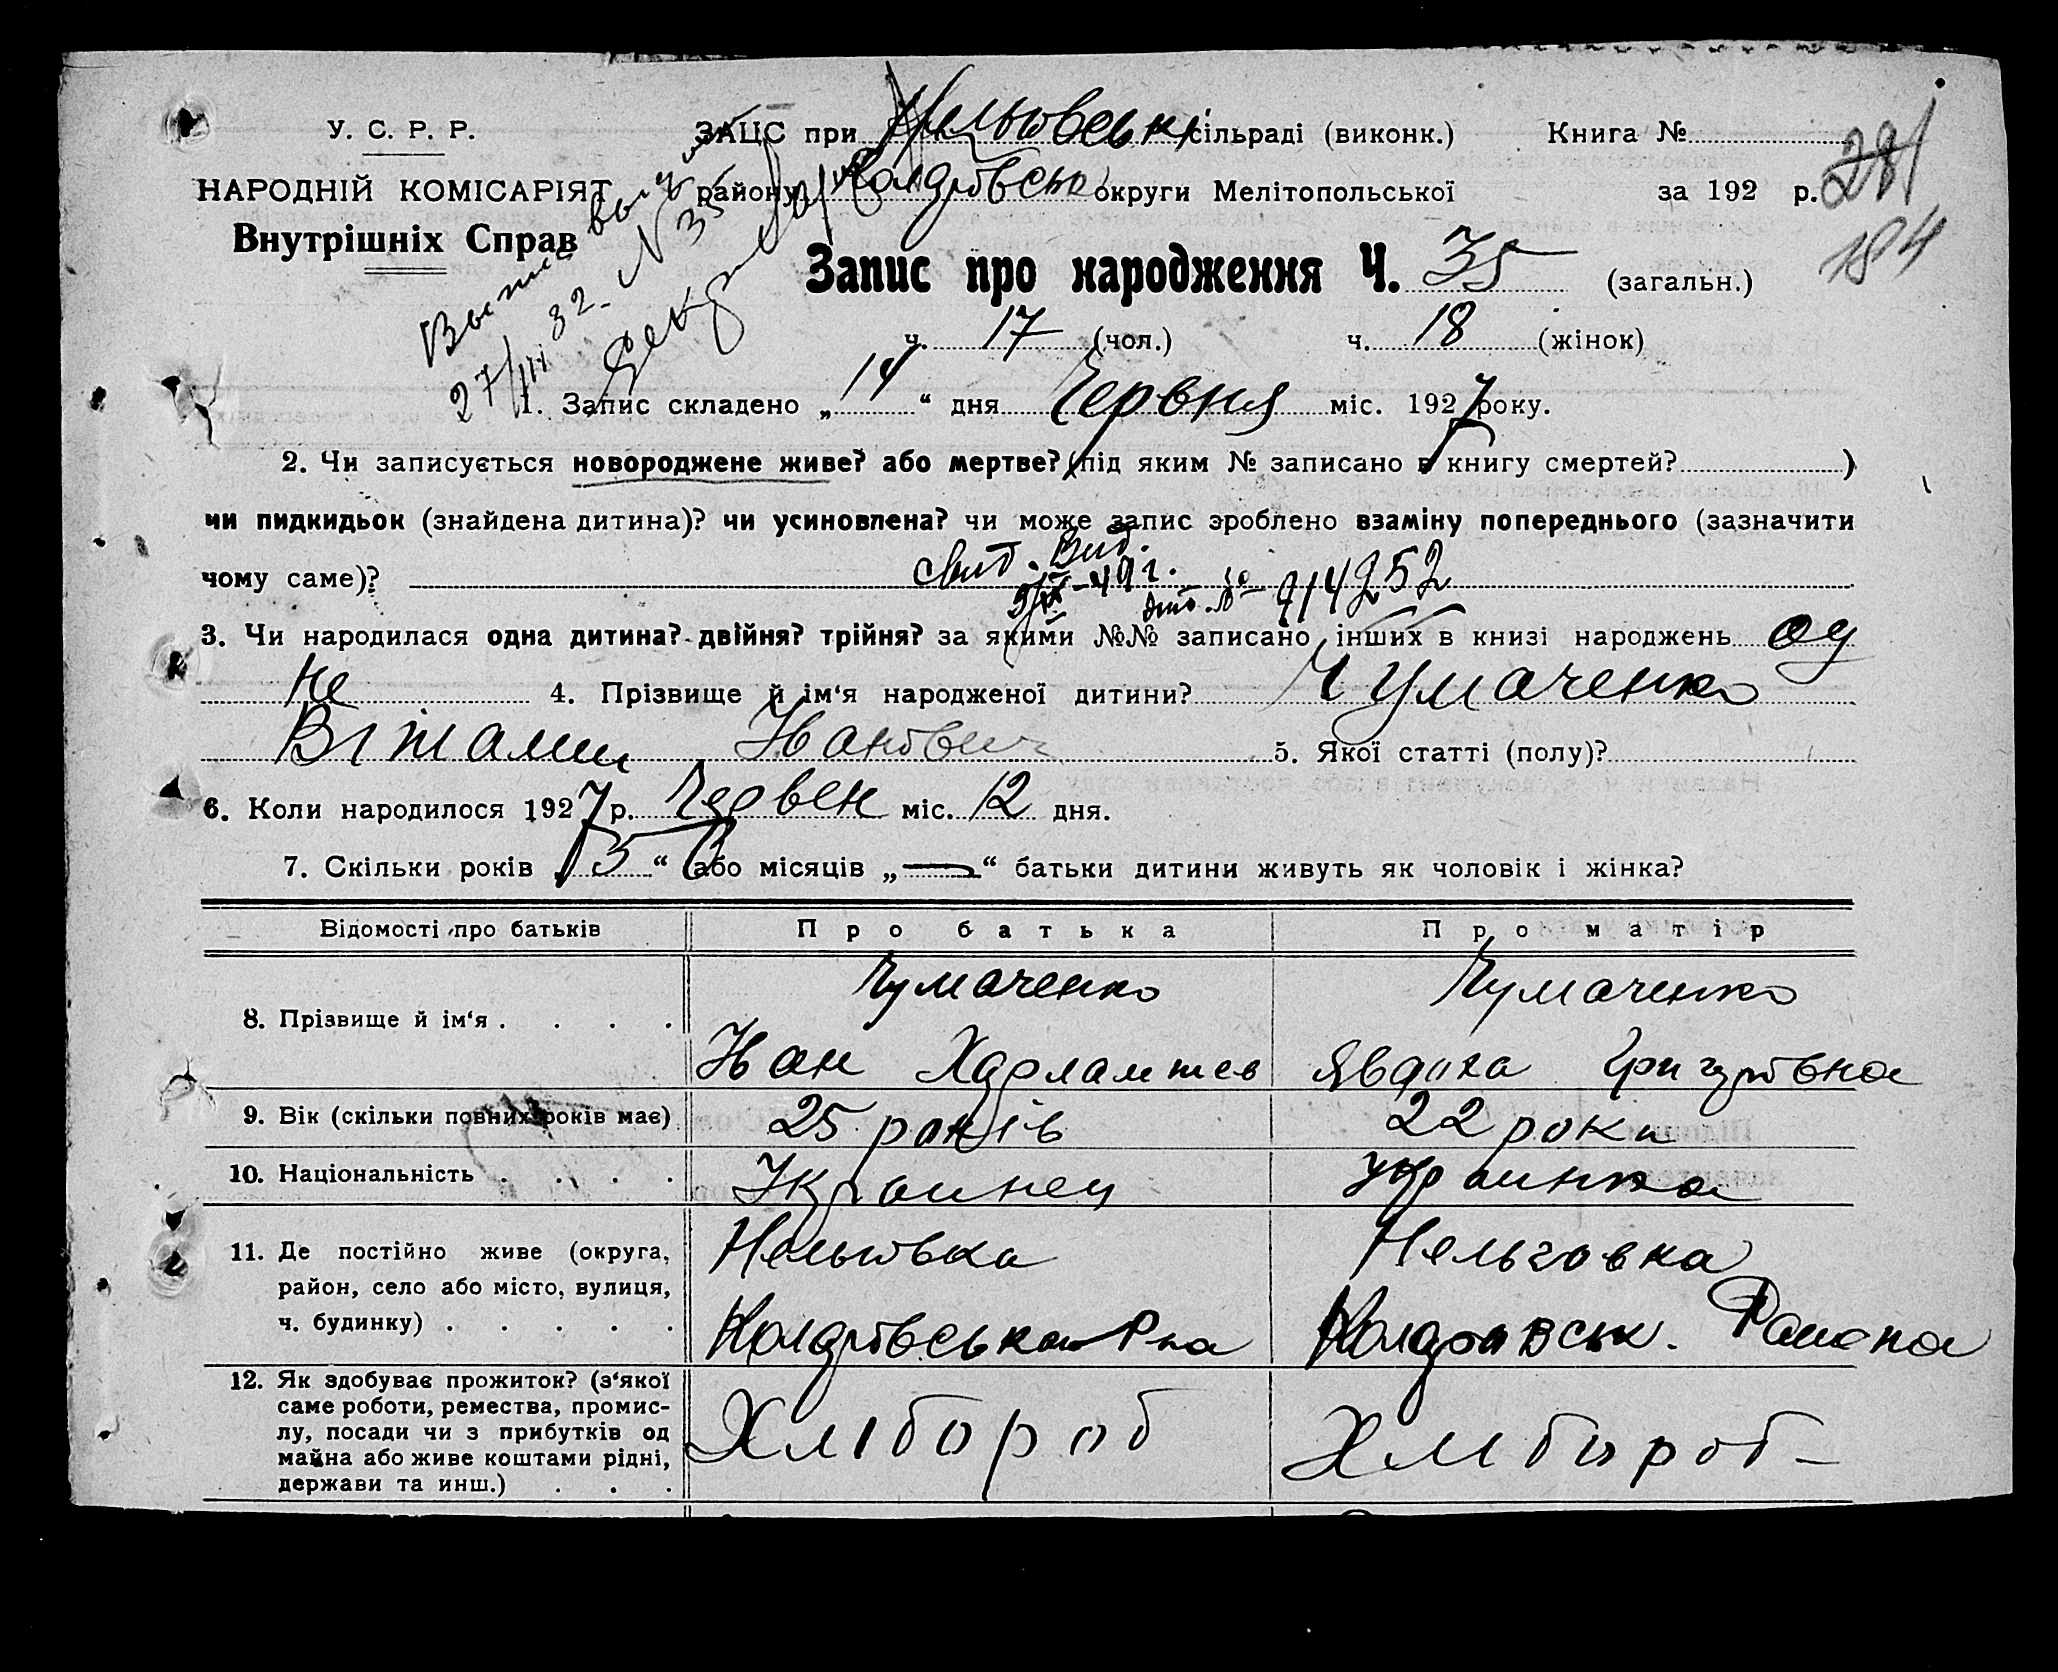 У. С. Р. Р.
НАРОДНІЙ КОМІСАРІЯТ
Внутрішніх Справ
ЗАЦС при Нельговськ сільраді (виконк.) Книга №
району округи Мелітопольської за 192 р.
281
184
27/III 32 N 35
Запис про народження Ч. 35 (загальн.)
ч. 17 (чол.) ч. 18 (жінок)
1. Запис складено „ 14 “ дня Червня міс. 1927 року.
2. Чи записується новороджене живе? або мертве? (під яким № записано в книгу смертей? )
чи пидкидьок (знайдена дитина)? чи усиновлена? чи може запис зроблено взаміну попереднього (зазначити
чому саме)?
3. Чи народилася одна дитина? двійня? трійня? за якими №№ записано інших в книзі народжень од
не 4. Прізвище й ім‘я народженої дитини? Чумаченко
Віталий Іванович 5. Якої статті (полу)?
6. Коли народилося 1927 р. Червен міс. 12 дня.
7. Скільки років „ 5 “ або місяців „ — “ батьки дитини живуть як чоловік і жінка?
Відомості про батьків Про батька Про матір
8. Прізвище й ім‘я . . . . Чумаченко Чумаченко
Іван Харлампиев Явдоха Григуровна
9. Вік (скільки повних років має) 25 років 22 роки
10. Національність . . . . Украинец украинка
11. Де постійно живе (округа, район, село або місто, вулиця, ч. будинку) . . . . . Нельговка Нельговка
Р-на Района
12. Як здобуває прожиток? (з‘якої саме роботи, ремества, промислу, посади чи з прибутків од майна або живе коштами рідні, держави та инш.) . . . Хлібороб Хлібороб